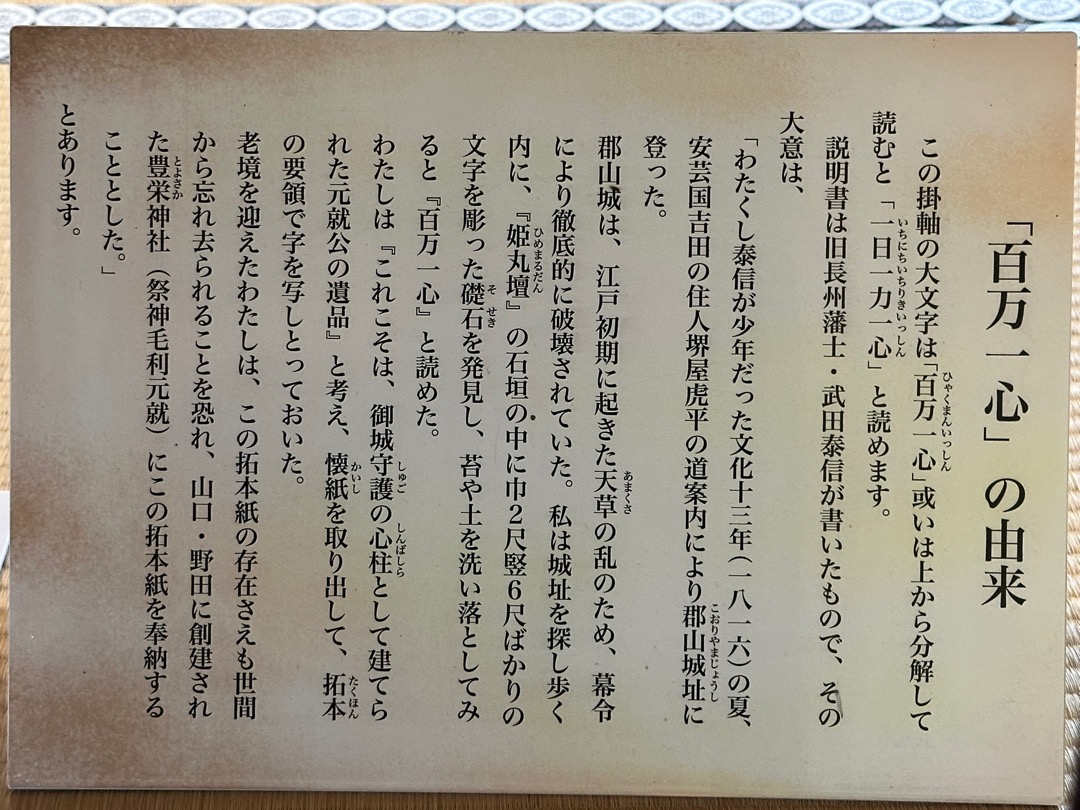 「百万一心」の由来
この掛軸の大文字は「百万一心」或いは上から分解して
読むと「一日一力一心」と読めます。
説明書は旧長州藩士・武田泰信が書いたもので、その
大意は、
「わたくし泰信が少年だった文化十三年（一八一六）の夏、
安芸国吉田の住人堺屋虎平の道案内により郡山城址に
登った。
郡山城は、江戸初期に起きた天草の乱のため、幕令
により徹底的に破壊されていた。私は城址を探し歩く
内に、『姫丸壇』の石垣の中に巾２尺竪６尺ばかりの
文字を彫った礎石を発見し、苔や土を洗い落としてみ
ると『百万一心』と読めた。
わたしは『これこそは、御城守護の心柱として建てら
れた元就公の遺品』と考え、懐紙を取り出して、拓本
の要領で字を写しとっておいた。
老境を迎えたわたしは、この拓本紙の存在さえも世間
から忘れ去られることを恐れ、山口・野田に創建され
た豊栄神社（祭神毛利元就）にこの拓本紙を奉納する
こととした。」
とあります。